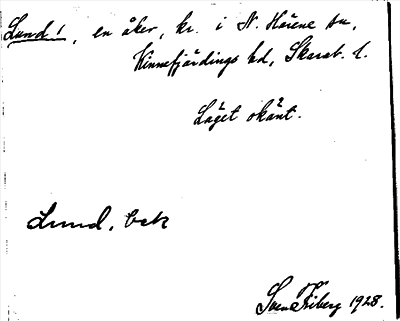 Lund !, en åker, kr. i N. Härene sn,
Kinnefjärdings hd, Skarab. l.
Läget okänt.
Lund, bek
Sven Friberg 1928.